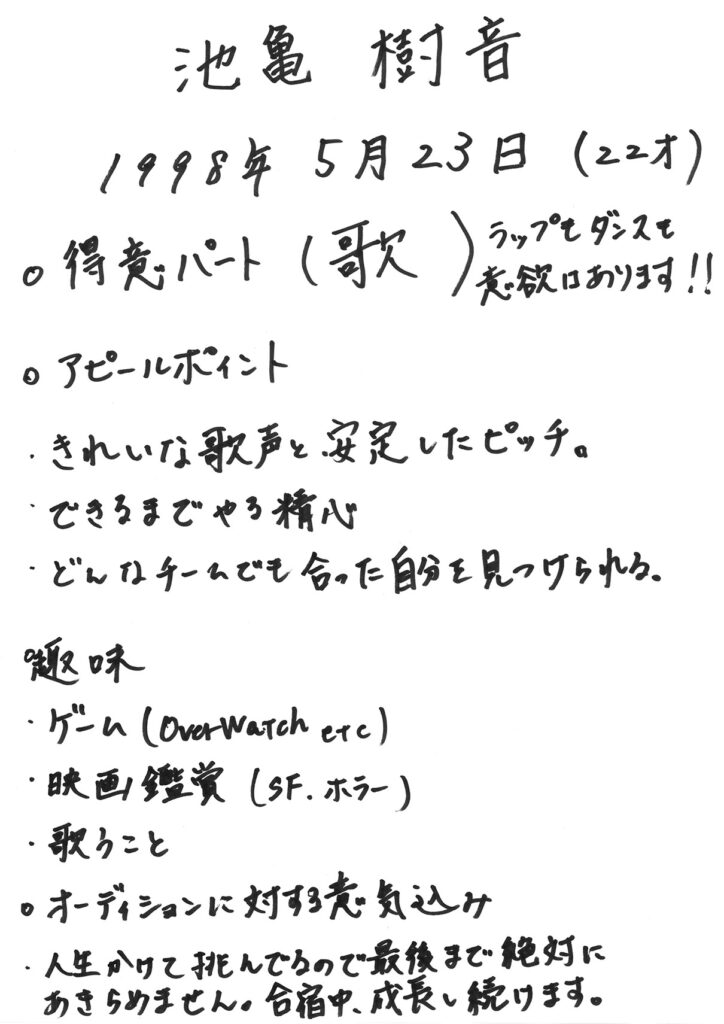 池亀 樹音
1998年 5月23日 (22才)
○ 得意パート (歌 ) ラップもダンスも
意欲はあります!!
○ アピールポイント
・きれいな歌声と安定したピッチ。
・できるまでやる精心
・どんなチームでも合った自分を見つけられる。
○趣味
・ゲーム (OverWatch etc)
・映画鑑賞 (SF. ホラー)
・歌うこと
○ オーディションに対する意気込み
・人生かけて挑んでるので最後まで絶対に
あきらめません。合宿中、成長し続けます。